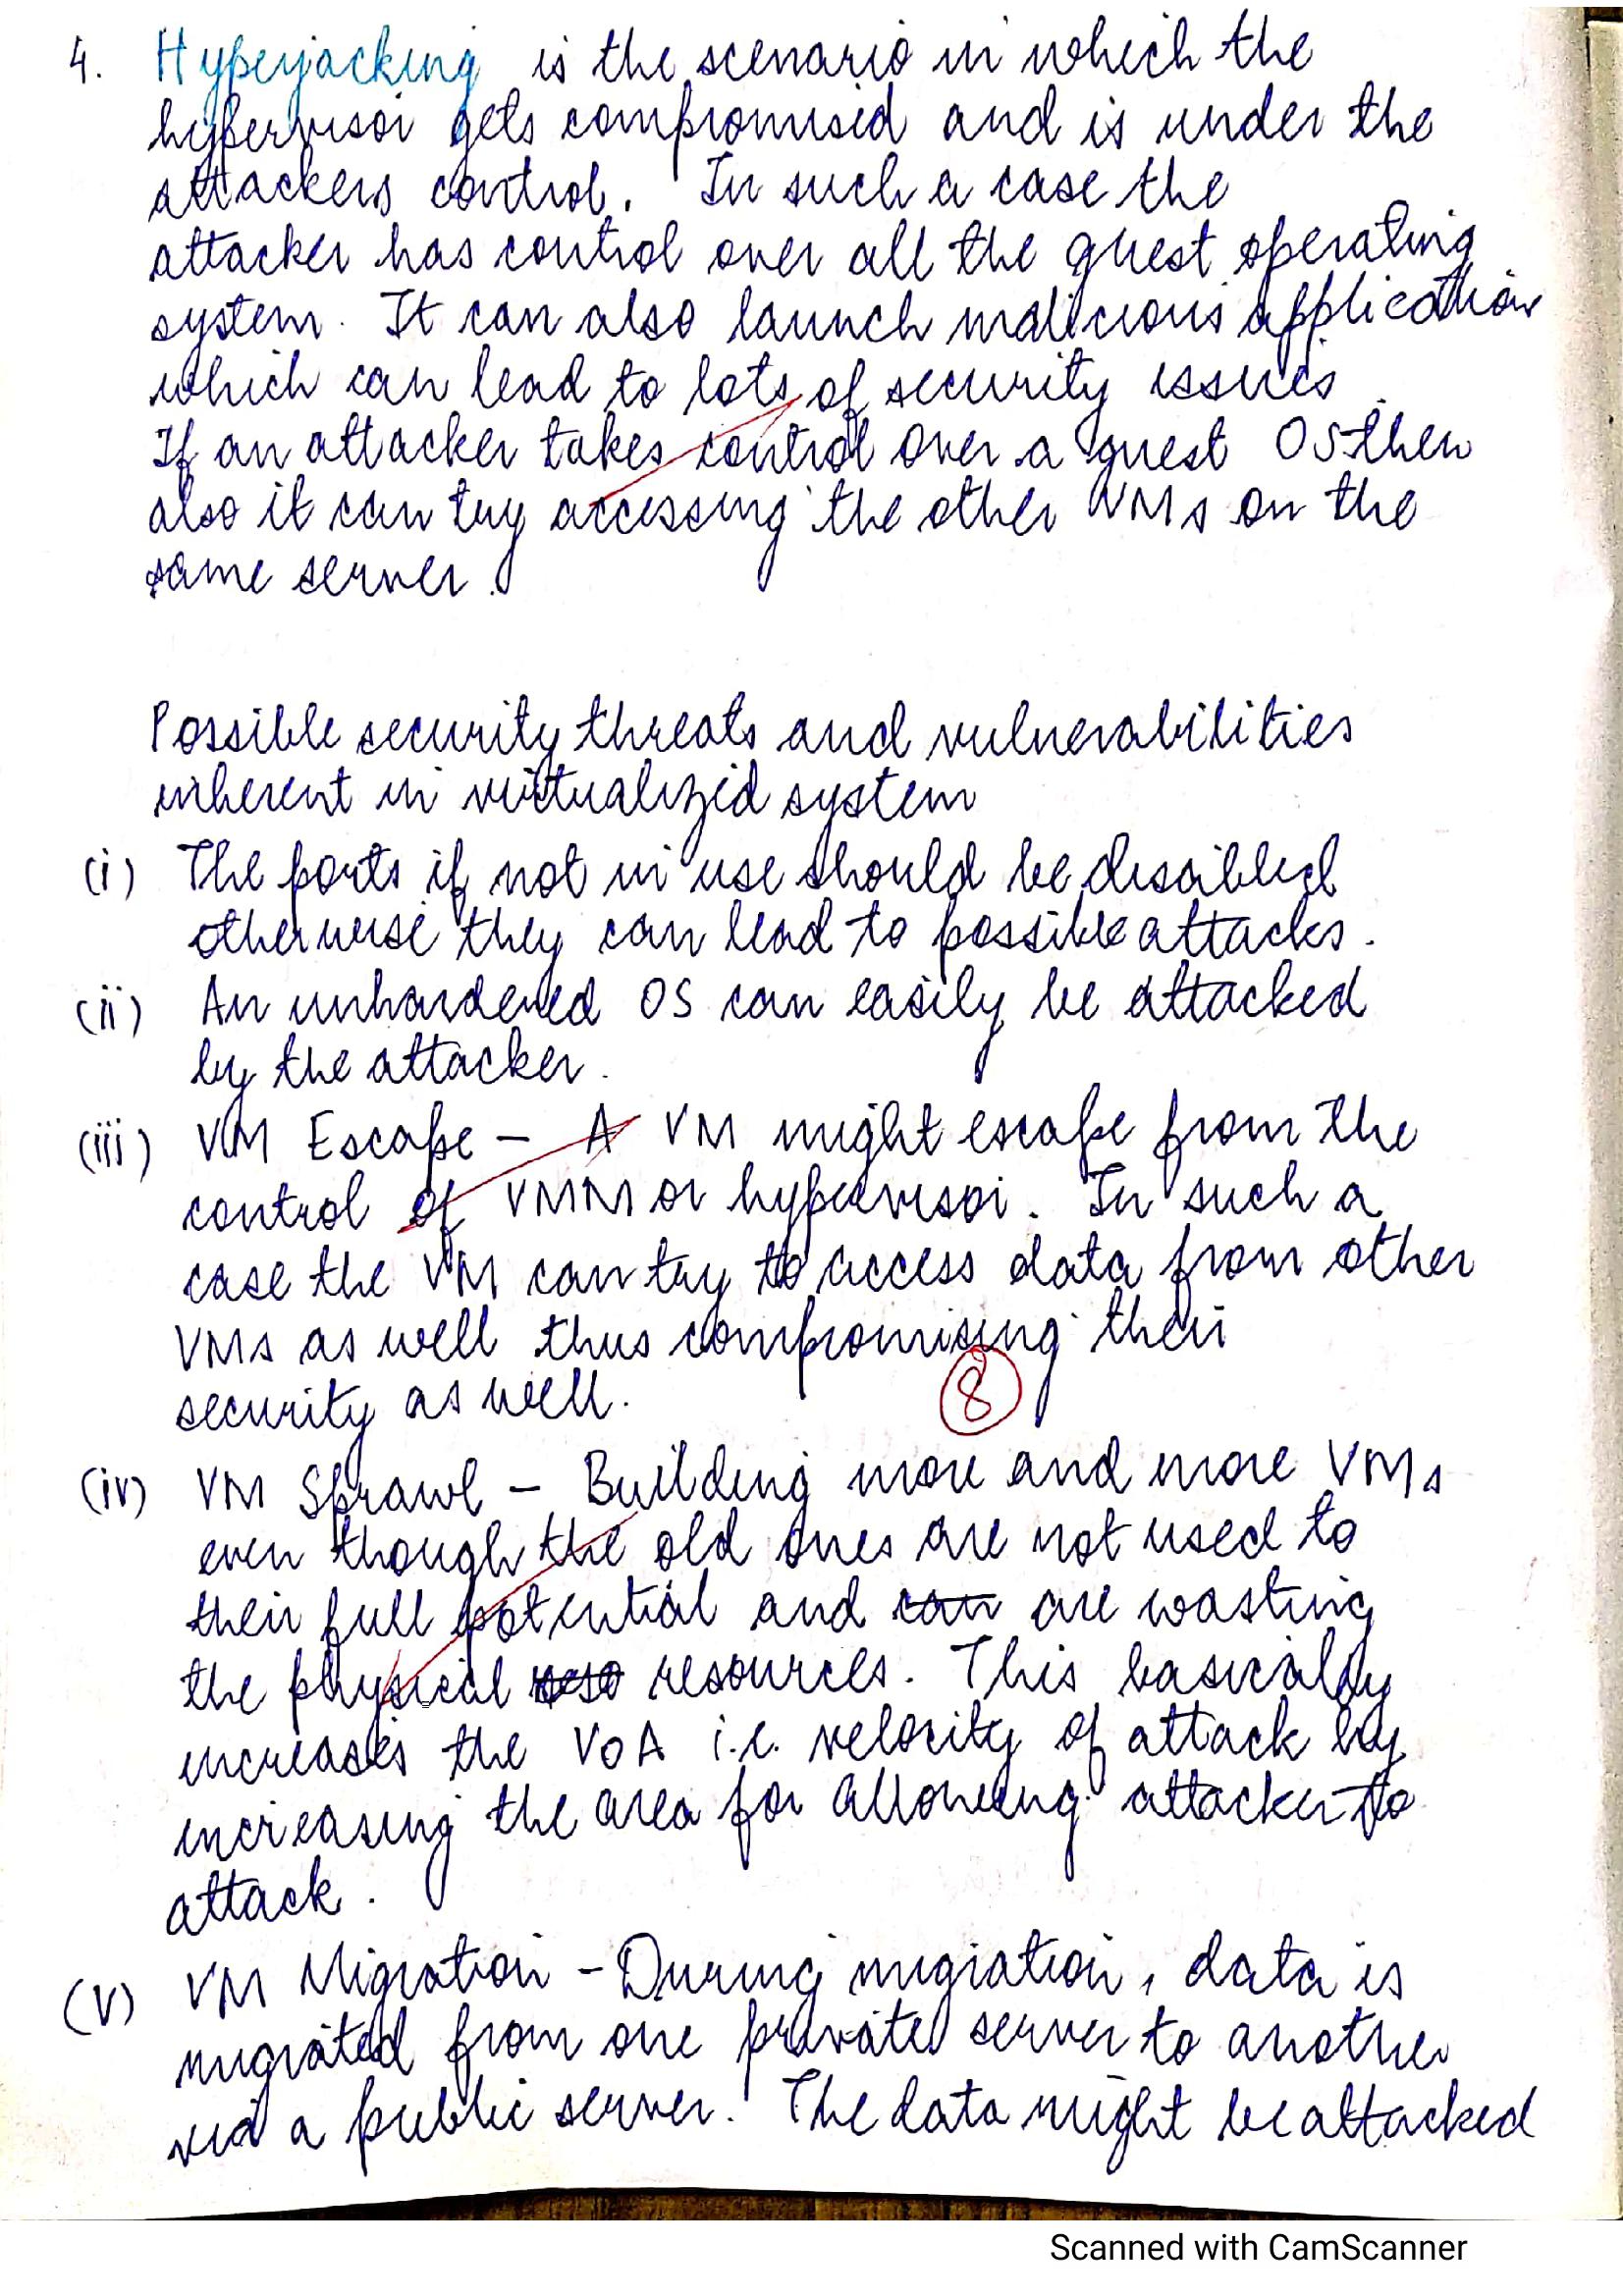 4. Hyperjacking is the scenario in which the
hypervisor gets compromised and is under the
attackers control. In such a case the
attacker has control over all the guest operating
system. It can also launch malicious application
which can lead to lots of security issues.
If an attacker takes control over a guest OS then
also it can try accessing the other VMs on the
same server.
Possible security threats and vulnerabilities
inherent in virtualized system
(i) The ports if not in use should be disabled
otherwise they can lead to possible attacks.
(ii) An unhardened OS can easily be attacked
by the attacker.
(iii) VM Escape - A VM might escape from the
control of VMM or hypervisor. In such a
case the VM can try to access data from other
VMs as well thus compromising their
security as well.
8
(iv) VM Sprawl - Building more and more VMs
even though the old ones are not used to
their full potential and can are wasting
the physical reso resources. This basically
increases the VOA i.e. velocity of attack by
increasing the area for allowing attacker to
attack.
(V) VM Migration - During migration, data is
migrated from one private server to another
via a public server. The data might be attacked
Scanned with CamScanner